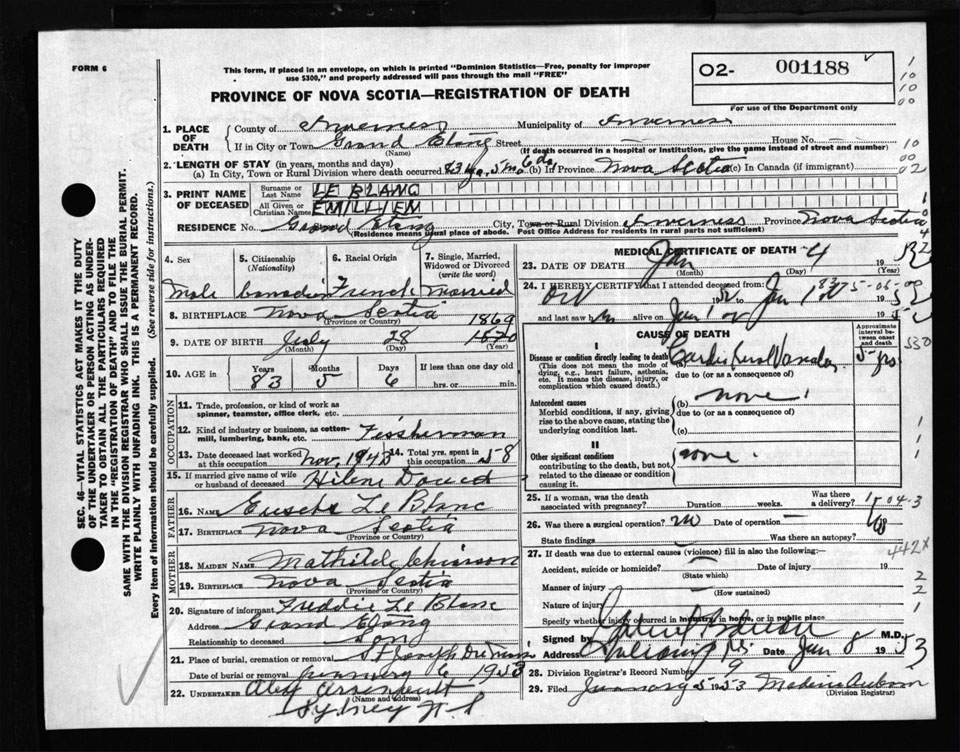 FORM 6
This form, if placed in an envelope, on which is printed "Dominion Statistics—Free, penalty for improper
use $300," and properly addressed will pass through the mail "FREE"
PROVINCE OF NOVA SCOTIA—REGISTRATION OF DEATH
02- 001188
For use of the Department only
SEC. 46—VITAL STATISTICS ACT MAKES IT THE DUTY
OF THE UNDERTAKER OR PERSON ACTING AS UNDER-
TAKER TO OBTAIN ALL THE PARTICULARS REQUIRED
IN THE "REGISTRATION OF DEATH" AND TO FILE THE
SAME WITH THE DIVISION REGISTRAR WHO SHALL ISSUE THE BURIAL PERMIT.
WRITE PLAINLY WITH UNFADING INK. THIS IS A PERMANENT RECORD.
Every item of information should be carefully supplied. (See reverse side for instructions.)
1. PLACE OF DEATH
County of Inverness Municipality of Inverness
If in City or Town Grand Etang Street House No.
(Name) (If death occurred in a hospital or institution, give the name instead of street and number)
2. LENGTH OF STAY (in years, months and days)
(a) In City, Town or Rural Division where death occurred 83 yrs. 5 mo 6 ds (b) In Province Nova Scotia (c) In Canada (if immigrant)
3. PRINT NAME OF DECEASED
Surname or Last Name LE BLANC
All Given or Christian Names EMILLIEN
RESIDENCE No. Grand Etang City, Town or Rural Division Inverness Province Nova Scotia
(Residence means usual place of abode. Post Office Address for residents in rural parts not sufficient)
4. Sex
5. Citizenship (Nationality)
6. Racial Origin
7. Single, Married, Widowed or Divorced (write the word)
Male Canadian French Married
8. BIRTHPLACE Nova Scotia
(Province or Country) 1869
9. DATE OF BIRTH July 28 1870
(Month) (Day) (Year)
10. AGE in Years Months Days If less than one day
83 5 6 hrs. or min.
OCCUPATION
11. Trade, profession, or kind of work as spinner, teamster, office clerk, etc.
12. Kind of industry or business, as cotton-mill, lumbering, bank, etc. Fissherman
13. Date deceased last worked at this occupation Nov. 1943 14. Total yrs. spent in this occupation 58
15. If married give name of wife or husband of deceased Hilene Doucet
FATHER
16. NAME Eusebe Le Blanc
17. BIRTHPLACE Nova Scotia
(Province or Country)
MOTHER
18. MAIDEN NAME Mathilda Chiasson
19. BIRTHPLACE Nova Scotia
(Province or Country)
20. Signature of informant Freddie Le Blanc
Address Grand Etang
Relationship to deceased Son
21. Place of burial, cremation or removal St Joseph Du Moine
Date of burial or removal January 6 1953
22. UNDERTAKER Alex Arsenault
(Name and address)
Sydney N.S
MEDICAL CERTIFICATE OF DEATH
23. DATE OF DEATH Jan 4
(Month) (Day) (Year)
24. I HEREBY CERTIFY that I attended deceased from:
and last saw h alive on Jan 1
CAUSE OF DEATH
Approximate interval between onset and death
I
Disease or condition directly leading to death
(This does not mean the mode of dying, e.g., heart failure, asthenia, etc. It means the disease, injury, or complication which caused death.)
(a) Cardio Renal Vascular 5 yrs
due to (or as a consequence of)
Antecedent causes
Morbid conditions, if any, giving rise to the above cause, stating the underlying condition last.
(b) none
due to (or as a consequence of)
(c)
II
Other significant conditions
contributing to the death, but not related to the disease or condition causing it.
none
25. If a woman, was the death associated with pregnancy? Duration weeks. Was there a delivery?
26. Was there a surgical operation? no Date of operation
State findings Was there an autopsy?
27. If death was due to external causes (violence) fill in also the following:—
Accident, suicide or homicide? Date of injury 19
(State which)
Manner of injury
(How sustained)
Nature of injury
Specify whether injury occurred in industry, in home, or in public place
Signed by M.D.
Address Date Jan 8 1953
28. Division Registrar's Record Number 9
29. Filed January 5 1953
(Division Registrar)
442x